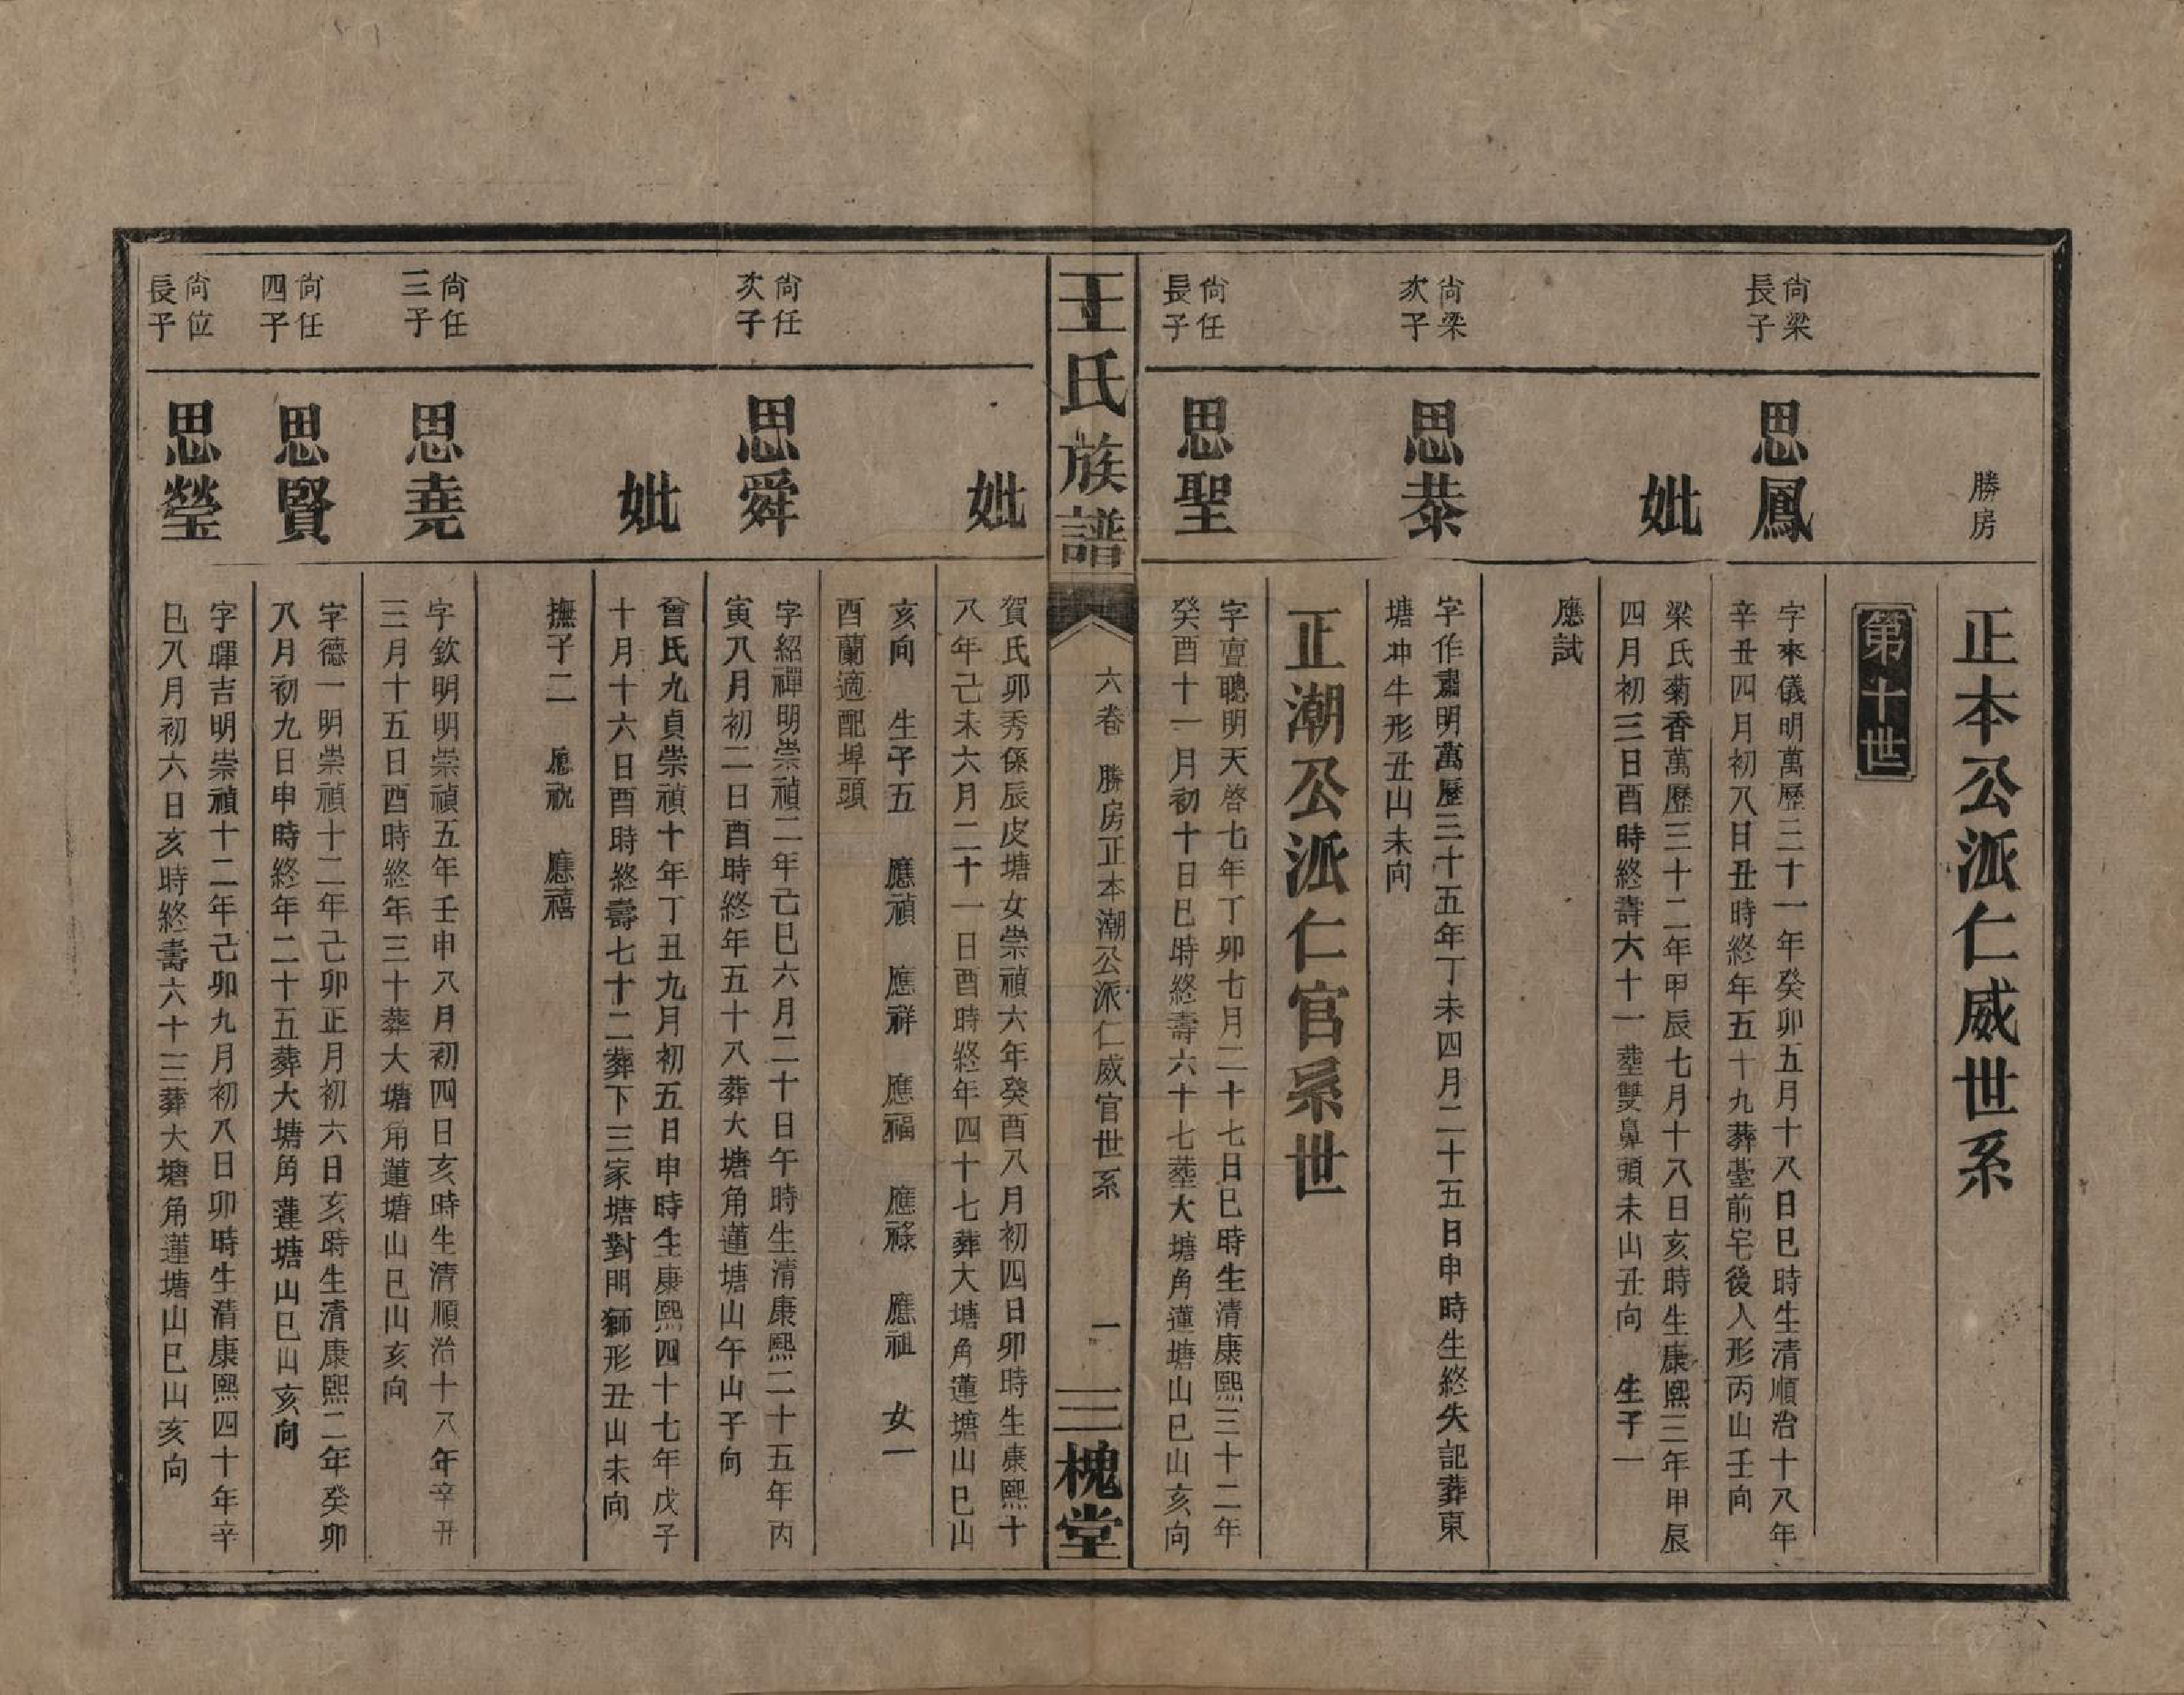 勝房
正本公派仁威世系
第十世
尙梁
長子
思鳳
字來儀明萬歷三十一年癸卯五月十八日巳時生清順治十八年
辛丑四月初八日丑時終年五十九葬臺前宅後人形丙山壬向
妣
梁氏菊香萬歷三十二年甲辰七月十八日亥時生康熙三年甲辰
四月初三日酉時終壽六十一塟雙鼻頭未山丑向 生子一
應試
尙梁
次子
思恭
字作肅明萬歷三十五年丁未四月二十五日申時生終失記葬東
塘冲牛形丑山未向
正潮公派仁官系世
尙任
長子
思聖
字亶聰明天啓七年丁卯七月二十七日巳時生清康熙三十二年
癸酉十一月初十日巳時終壽六十七塟大塘角蓮塘山巳山亥向
王氏族譜
六卷 勝房正本潮公派仁威官世系
一
三槐堂
妣
賀氏卯秀係辰皮塘女崇禎六年癸酉八月初四日卯時生康熙十
八年己未六月二十一日酉時終年四十七葬大塘角蓮塘山巳山
亥向 生子五 應禎 應祥 應福 應祿 應祖 女一
酉蘭適配埠頭
尙任
次子
思舜
字紹禪明崇禎二年己巳六月二十日午時生清康熙二十五年丙
寅八月初二日酉時終年五十八葬大塘角蓮塘山午山子向
妣
曾氏九貞崇禎十年丁丑九月初五日申時生康熙四十七年戊子
十月十六日酉時終壽七十二葬下三家塘對門獅形丑山未向
撫子二 應祝 應禧
尙任
三子
思堯
字欽明明崇禎五年壬申八月初四日亥時生清順治十八年辛丑
三月十五日酉時終年三十葬大塘角蓮塘山巳山亥向
尙任
四子
思賢
字德一明崇禎十二年己卯正月初六日亥時生清康熙二年癸卯
八月初九日申時終年二十五葬大塘角蓮塘山巳山亥向
尙位
長子
思瑩
字暉吉明崇禎十二年己卯九月初八日卯時生清康熙四十年辛
巳八月初六日亥時終壽六十三葬大塘角蓮塘山巳山亥向